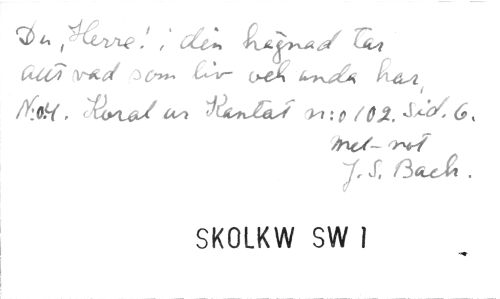 Du, Herre! i din hägnad tar
allt vad som liv och anda har,
N:o 4. Koral ur Kantat n:o 102. Sid. 6.
mel-not
J. S. Bach.
SKOLKW SW 1